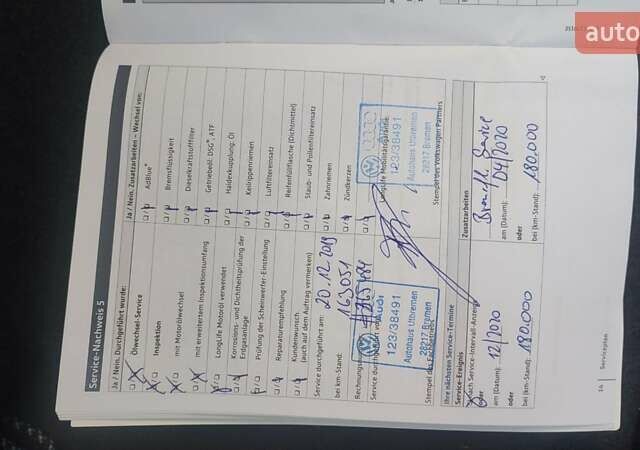 auto
Service-Nachweis 5
Ja / Nein. Durchgeführt wurde:
Ölwechsel-Service
Inspektion
mit Motorölwechsel
mit erweitertem Inspektionsumfang
LongLife Motoröl verwendet
Korrosions- und Dichtheitsprüfung der
Erdgasanlage
Prüfung der Scheinwerfer-Einstellung
Reparaturempfehlung
Kundenwunsch
(auch auf dem Auftrag vermerken)
Service durchgeführt am: 20.12.2019
bei km-Stand: 163.051
Rechnungs
Service durch
Audi
123/38491
Autohaus Utbremen
28217 Bremen
Stempel des
Ja / Nein. Zusatzarbeiten – Wechsel von:
AdBlue®
Bremsflüssigkeit
Dieselkraftstofffilter
Getriebeöl: DSG®, ATF
Haldexkupplung: Öl
Keilrippenriemen
Luftfiltereinsatz
Reifenfüllflasche (Dichtmittel)
Staub- und Pollenfiltereinsatz
Zahnriemen
Zündkerzen
LongLife Mobilitätsgarantie
Audi
123/38491
Autohaus Utbremen
28217 Bremen
Stempel des Volkswagen Partners
Ihre nächsten Service-Termine
Service-Ereignis
nach Service-Intervall-Anzeige
oder
am (Datum): 12/2020
oder
bei (km-Stand): 180.000
Zusatzarbeiten
Service
am (Datum): 04/2020
oder
bei (km-Stand): 180.000
16
Serviceplan